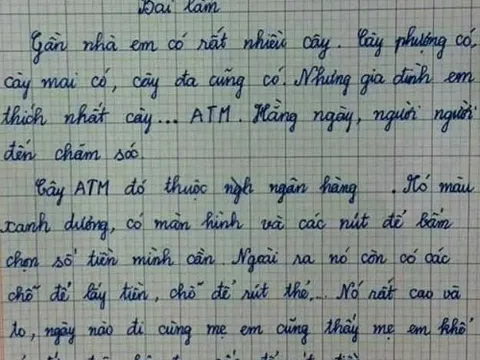 Bài làm
Gần nhà em có rất nhiều cây. Cây phượng có,
cây mai có, cây đa cũng có. Nhưng gia đình em
thích nhất cây... ATM. Hằng ngày, người người
đến chăm sóc.
Cây ATM đó thuộc ngh ngân hàng . Nó màu
xanh dương, có màn hình và các nút để bấm
chọn số tiền mình cần Ngoài ra nó còn có các
chỗ để lấy tiền, chỗ để rút thẻ,... Nó rất cao và
to, ngày nào đi cùng mẹ em cũng thấy mẹ em khổ